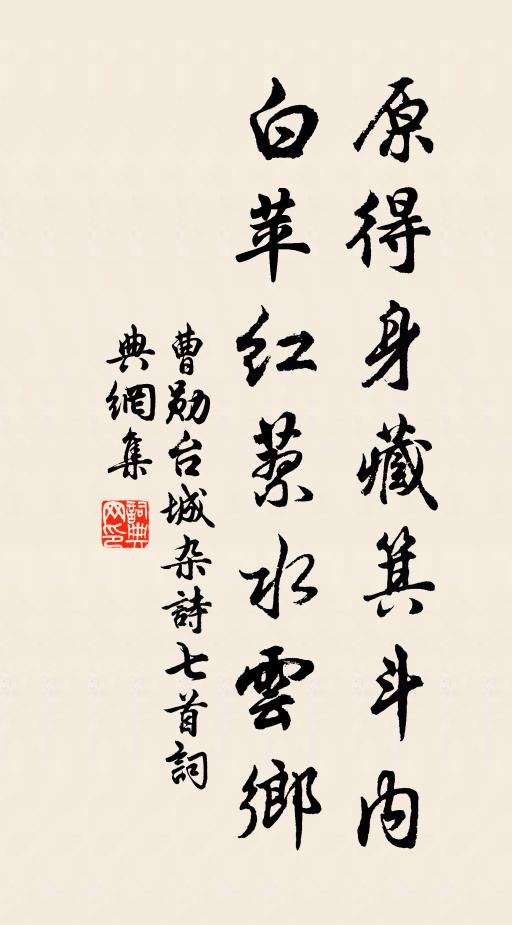 原得身藏箕斗内
白苹红蓼水雲鄉
曹勋台城杂詩七首詞
典網集
詞典
网印